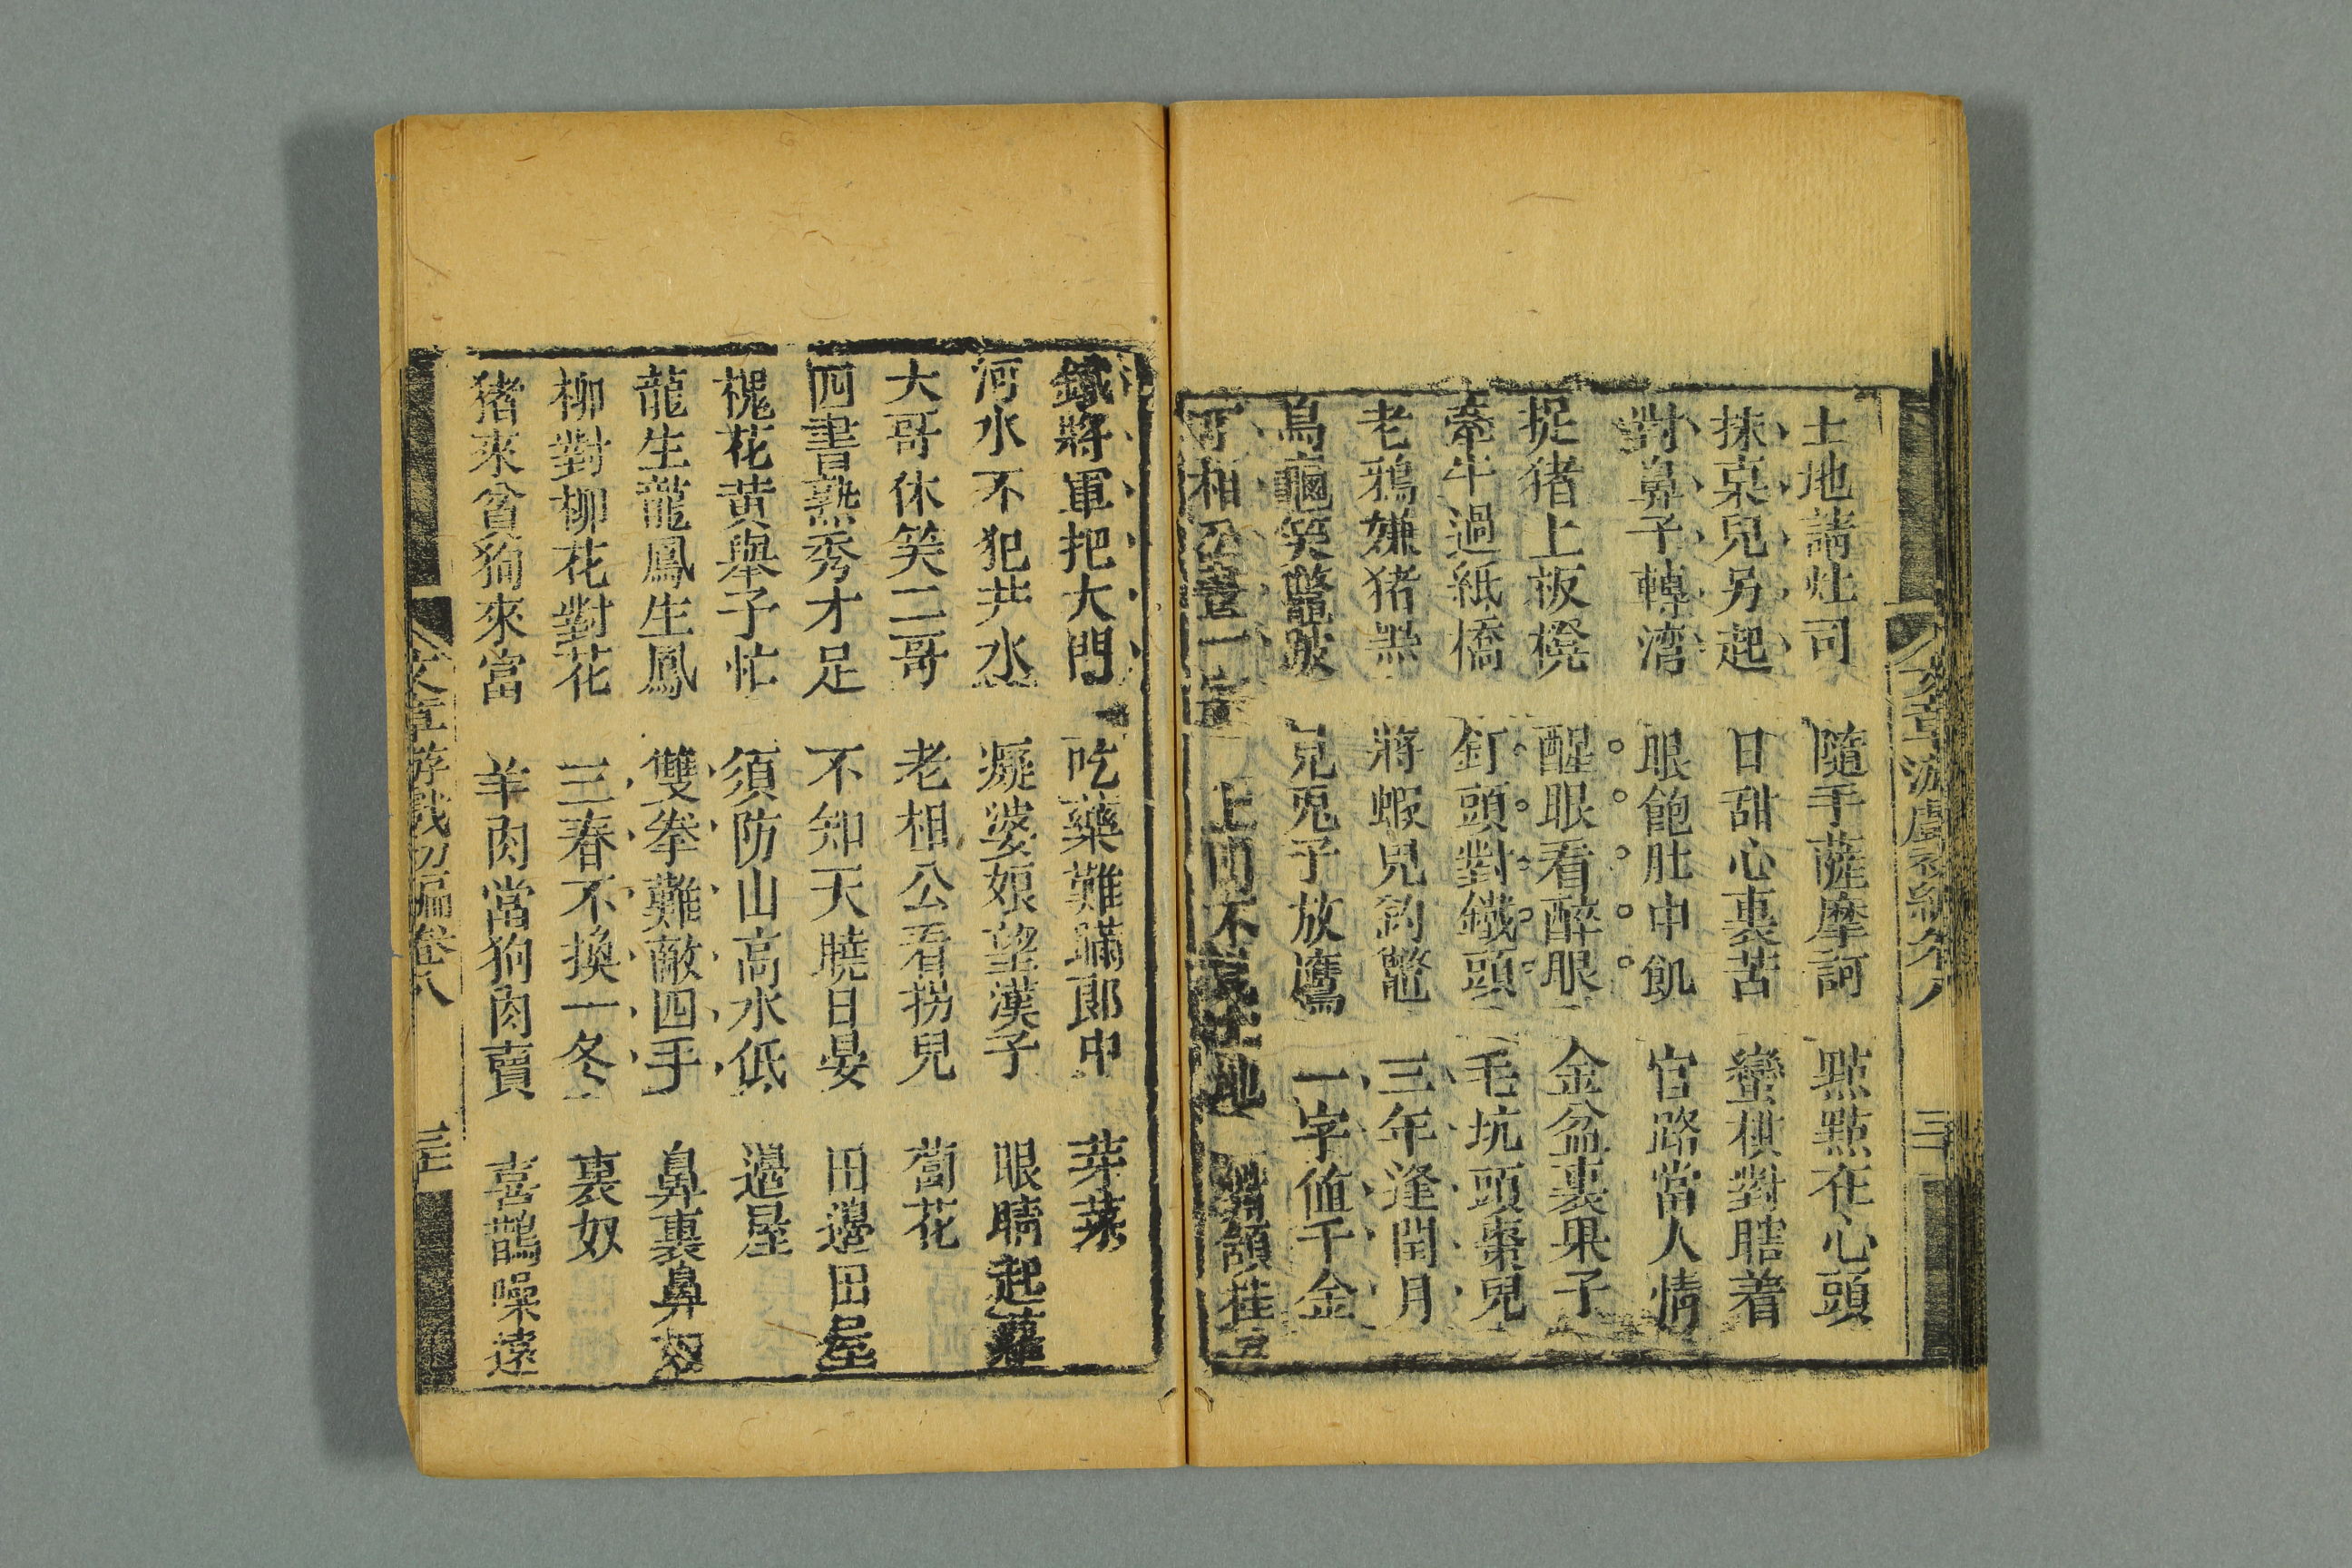 土地請灶司　隨手薩摩訶　點點在心頭
抹桌兒另起　日甜心裏苦　蠻棋對瞎着
對鼻子轉湾　眼飽肚中飢　官路當人情
捉猪上板櫈　醒眼看醉眼　金盆裏果子
牽牛過紙橋　釘頭對鐵頭　毛坑頭棗兒
老鴉嫌猪黑　將蝦兒釣鼈　三年逢閏月
烏龜笑鼈跛　見兎子放鷹　一字値千金
相公
鐵將軍把大門　吃藥難瞞郎中　芽菜
河水不犯井水　癡婆娘望漢子　眼睛起蘿
大哥休笑二哥　老相公看拐兒　蔔花
四書熟秀才足　不知天曉日晏　田邊田屋
槐花黄舉子忙　須防山高水低　邊屋
龍生龍鳳生鳳　雙拳難敵四手　鼻裏鼻
柳對柳花對花　三春不換一冬　裏奴
猪來貧狗來富　羊肉當狗肉賣　喜鵲噪遠
文章游戲初編卷八